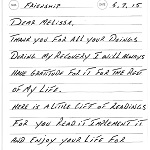 FRIENDSHIP 9.7.15
DEAR MELISSA,
THANK YOU FOR ALL YOUR DOINGS.
DURING MY RECOVERY I WILL ALWAYS
HAVE GRATITUDE FOR IT FOR THE REST
OF MY LIFE.
HERE IS A LITTLE LIFT OF READINGS
FOR YOU READ IT IMPLEMENT IT
AND ENJOY YOUR LIFE FOR